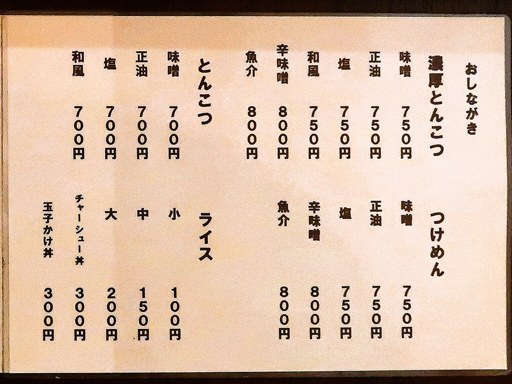 おしながき
濃厚とんこつ
味噌 750円
正油 750円
塩 750円
和風 750円
辛味噌 800円
魚介 800円
とんこつ
味噌 700円
正油 700円
塩 700円
和風 700円
つけめん
味噌 750円
正油 750円
塩 750円
辛味噌 800円
魚介 800円
ライス
小 100円
中 150円
大 200円
チャーシュー丼 300円
玉子かけ丼 300円